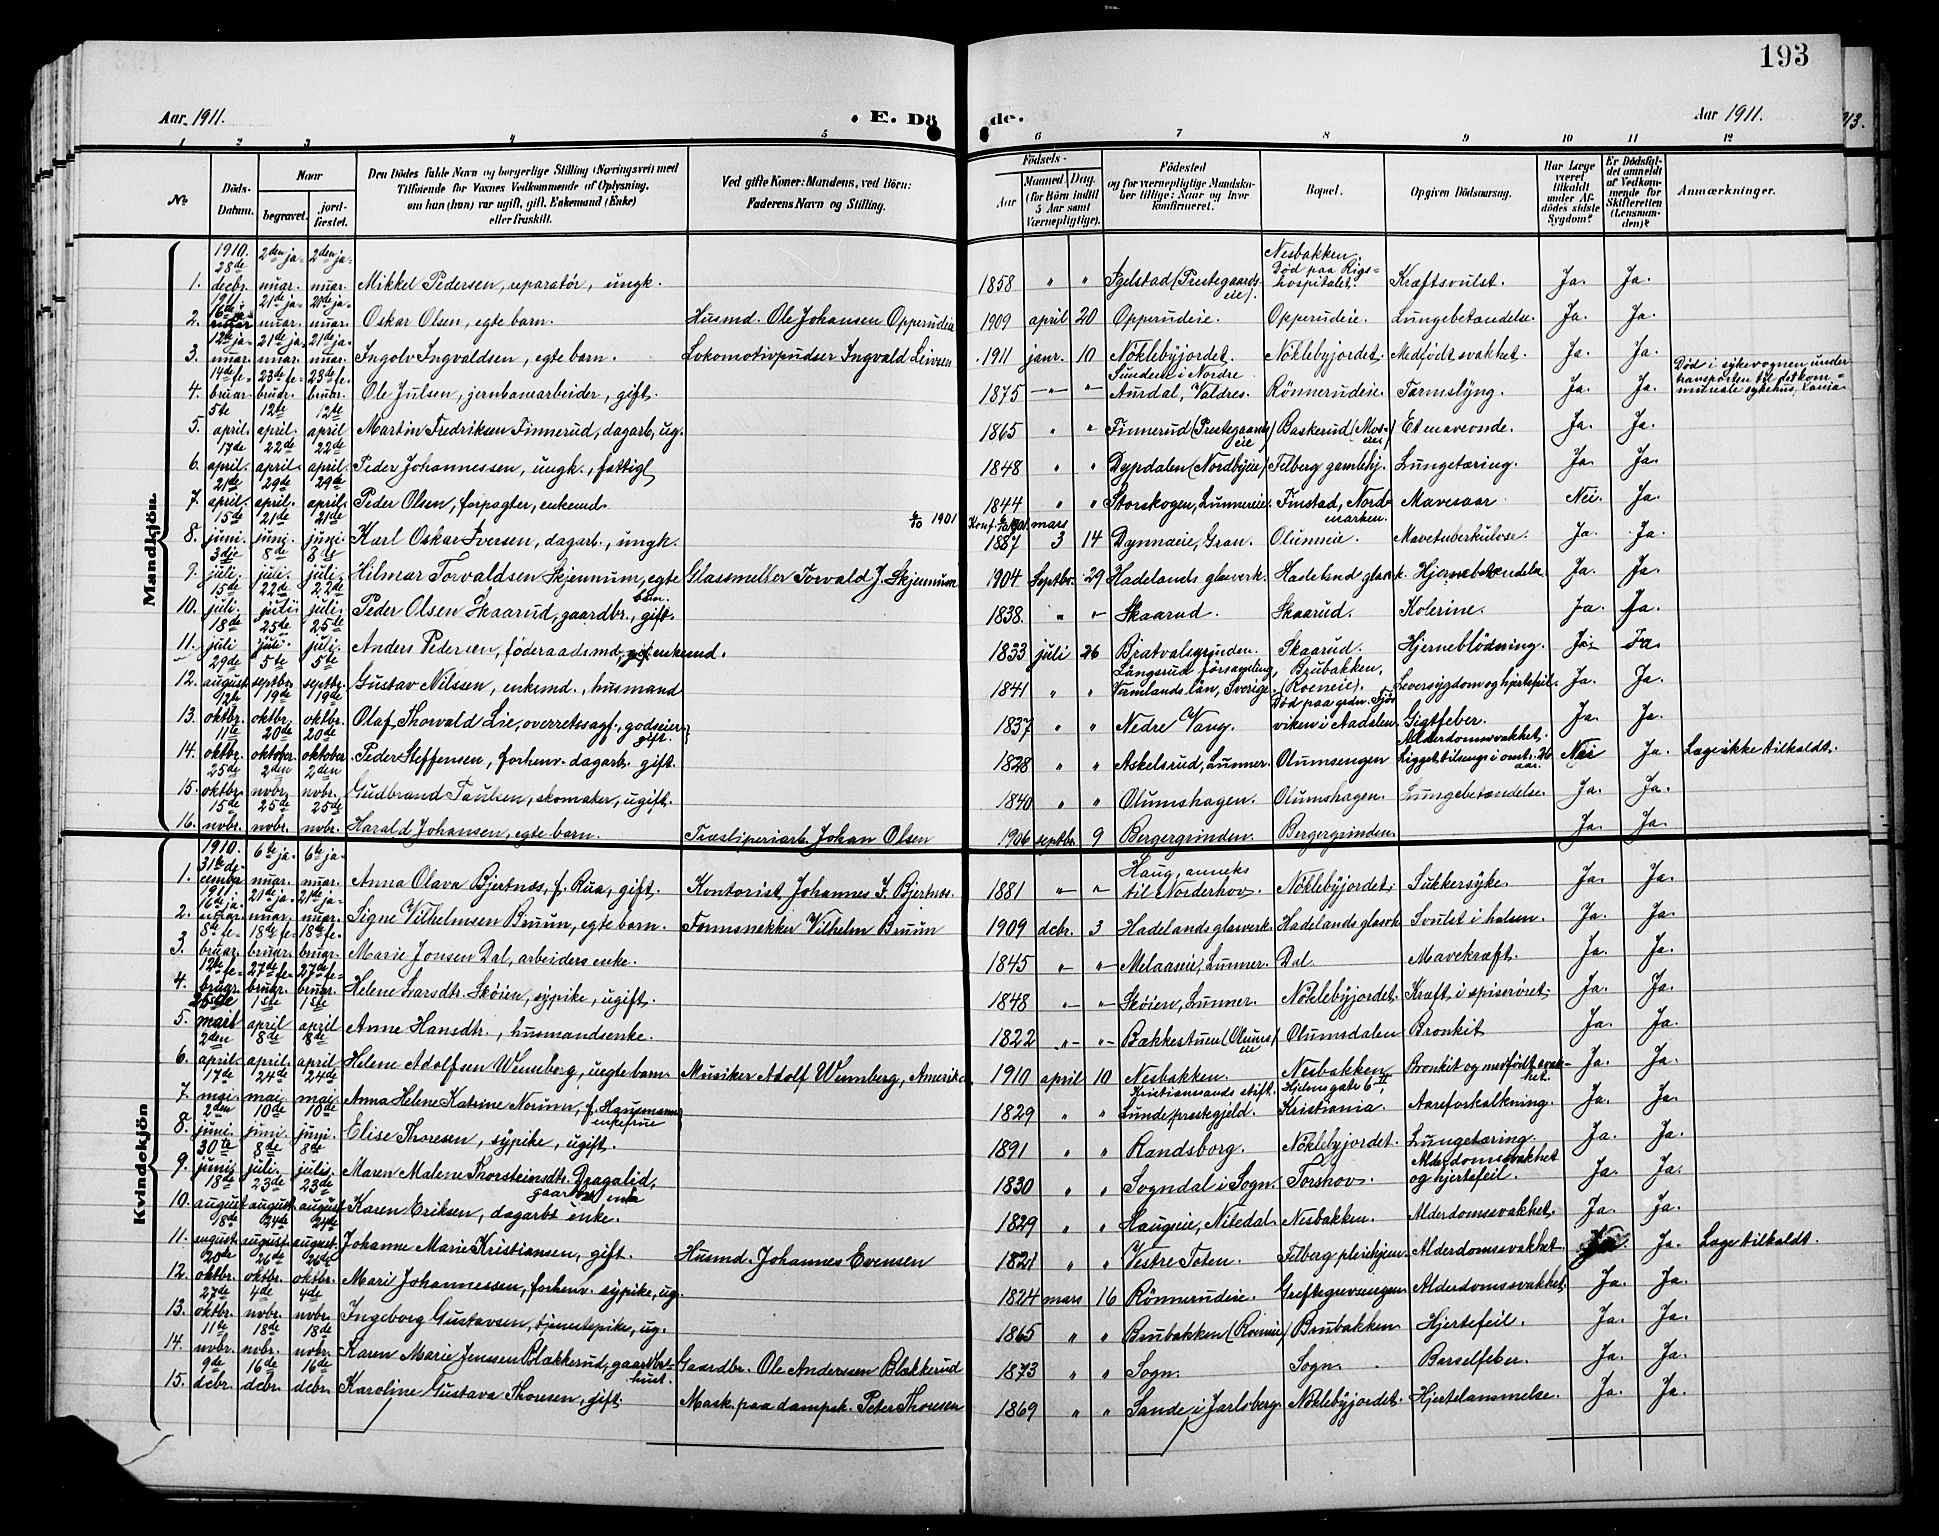 193
Aar 1911.
E. Döde.
Aar 1911.
1 2 3 4 5 6 7 8 9 10 11 12
No
Döds-Datum.
Naar
begravet.
jordfæstet.
Den Dödes fulde Navn og borgerlige Stilling (Næringsvei) med
Tilföiende for Voxnes Vedkommende af Oplysning,
om han (hun) var ugift, gift, Enkemand (Enke)
eller fraskilt.
Ved gifte Koner: Mandens, ved Börn:
Faderens Navn og Stilling.
Födsels-
Aar
Maaned Dag.
(for Börn indtil
5 Aar samt
Værnepligtige).
Födested
og for værnepligtige Mandska-
ber tillige: Naar og hvor
konfirmeret.
Bopæl.
Opgiven Dödsaarsag.
Har Læge
været
tilkaldt
under Af-
dödes sidste
Sygdom?
Er Dödsfal-
det anmeldt
af Vedkom-
mende for
Skifteretten
(Lensman-
den)?
Anmærkninger.
Mandkjön.
1. 1910. 28de decbr. 2den januar. 2den januar. Mikkel Pedersen, reparatør, ungk. 1858 " " Igelstad (Prestegaardseie). Nesbakken. Død paa Rigshospitalet. Kræftsvulst. Ja. Ja.
2. 1911. 16de januar 21de januar. 21de januar. Oskar Olsen, egte barn. Husmd. Ole Johansen Opperudeie 1909 april 20 Opperudeie. Opperudeie. Lungebetændelse. Ja. Ja.
3. 12te januar. 21de januar. 21de januar. Ingolv Ingvaldsen, egte barn. Lokomotivpudser Ingvald Leivsen 1911 janr. 10 Nöklebyjordet. Nöklebyjordet. Medfødt svakhet. Ja. Ja.
4. 14de februar 23de februar. 23de februar. Ole Julsen, jernbanearbeider, gift. 1875 " " Sundem i Nordre Aurdal, Valdres. Rönnerudeie. Tarmslyng. Ja. Ja. Død i sykevognen under transporten til det kommunale sykehus,
5. 5te april. 12te april. 12te april Martin Fredriksen Finnerud, dagarb., ug. 1865 " " Finnerud (Prestegaardseie) Baskerud (Moseie) Et maveonde. Ja. Ja.
6. 17de april. 22de april. 22de april. Peder Johannessen, ungk., fattigl. 1848 " " Dypdalen (Nordbyeie) Felberg gamlehj. Lungetæring. Ja. Ja.
7. 21de april. 29de april. 29de april. Peder Olsen, forpagter, enkemd. 1844 " " Storskogen, Lunnereie. Finstad, Nordmarken. Mavesaar Nei. Ja.
8. 15de juni. 21de juni. 21de juni. Karl Oskar Iversen, dagarb., ungk. 6/10 1901 Konf. 6/10 1901. 1887 mars 3 14 Dynnaeie, Gran. Olumeie. Mavetuberkulose. Ja. Ja.
9. 3dje juli. 8de juli. 8de juli. Hilmar Torvaldsen Skjennum, egte barn. Glassmelter Torvald J. Skjennum 1904 Septbr. 29 Hadelands glasverk. Hadeland glasvk. Hjernebetændelse. Ja. Ja.
10. 15de juli. 22de juli. 22de juli. Peder Olsen Skaarud, gaardbr., gift. 1838. " " Skaarud. Skaarud. Kolerine. Ja. Ja.
11. 18de juli 25de juli. 25de juli. Anders Pedersen, føderaadsmd., enkemd. 1833 juli 26 Bratvalsgrinden. Skaarud. Hjerneblödning. Ja. Ja.
12. 29de august 5te septbr. 5te septbr. Gustav Nilssen, enkemd., husmand 1841 " " Långsrud församling, Vermlands län, Sverige. Brubakken, (Roeneie). Leversygdom og hjertefeil. Ja. Ja.
13. 12te oktbr. 19de oktbr. 19de oktbr. Olaf Thorvald Lie, overretssagf., godseier gift. 1837 " " Nedre Vang. Død paa grdn. viken i Aadalen. Gigtfeber. Ja. Ja.
14. 11te oktbr. 20de oktober 20de oktober Peder Steffensen, forhenv. dagarb., gift. 1828 " " Askelsrud, Lunner. Olumsengen Alderdomssvakhet. Ligget tilsengs i omt. 26 aar. Nei Ja. Læge ikke tilkaldt.
15. 25de oktbr. 2den novbr. 2den novbr. Gudbrand Paulsen, skomaker, ugift. 1840 " " Olumshagen. Olumshagen. Lungebetændelse. Ja. Ja.
16. 15de novbr. 25de novbr. 25de novbr. Harald Johansen, egte barn. Træsliperiarb. Johan Olsen 1906 septbr. 9 Bergergrinden. Bergergrinden. Ja. Ja.
Kvindekjön
1. 1910. 31te december 6te januar. 6te januar. Anna Olava Bjertnæs, f. Rua, gift. Kontorist Johannes I. Bjertnæs. 1881 " " Haug, anneks til Norderhov. Nöklebyjordet. Sukkersyke. Ja. Ja.
2. 1911. 16de januar 21de januar. 21de januar. Signe Vilhelmsen Bruun, egte barn. Formsnekker Vilhelm Bruun 1909 dcbr. 3 Hadelands glasverk. Hadelands glasvk Svulst i halsen. Ja. Ja.
3. 8de februar. 18de februar. 18de februar. Marie Jonsen Dal, arbeiders enke. 1845 " " Melaaseie, Lunner. Dal. Mavekræft. Ja. Ja.
4. 12te februar. 27de februar. 27de februar. Helene Larsdtr. Skøien, sypike, ugift. 1848 " " Skøien, Lunner. Nöklebyjordet. Kræft i spiserøret. Ja. Ja.
5. 25de mars 1ste april 1ste april Anne Hansdtr., husmandsenke. 1822 " " Bækkestuen (Olumseie) Olumsdalen Bronkit Ja. Ja.
6. 2den april. 18de april. 18de april. Helene Adolfsen Wennberg, uegte barn. Musiker Adolf Wennberg, Amerika 1910 april 10 Nesbakken. Nesbakken Bronkit og medfødt svakhet. Ja. Ja.
7. 17de mai. 24de mai. 24de mai Anna Helene Katrine Norum, f. Haupmann enkefrue 1829 " " Kristianssands stift. Lunde prestegjeld. Hjelmsgate 6 II, Kristiania. Aareforkalkning. Ja. Ja.
8. 2den juni. 10de juni 10de juni. Elise Thoresen, sypike, ugift. 1891 " " Randsborg. Nöklebyjordet. Lungetæring Ja. Ja.
9. 30te juni 8de juli. 8de juli. Maren Malene Thorsteinsdtr. Dragalid, enke 1830 " " Sogndal i Sogn Torshov. Alderdomssvakhet og hjertefeil. Ja. Ja.
10. 18de august 23de august. 23de august. Karen Eriksen, dagarbs enke. 1829 " " Haugeie, Nitedal. Nesbakken. Alderdomssvakhet. Ja. Ja.
11. 18de august. 24de august. 24de august. Johanne Marie Kristiansen, gift. Husmd. Johannes Evensen 1821 " " Vestre Toten. Felberg pleiehjem. Alderdomssvakhet. Ja. Ja. Læge tilkaldt.
12. 20de oktbr. 26de oktbr. 26de oktbr. Mari Johannessen, forhenv. sypike, ug. 1824 mars 16 Rönnerudeie. Greftegrevsengen Alderdomssvakhet. Ja. Ja.
13. 27de oktbr. 4de novbr. 4de novbr. Ingeborg Gustavsen, tjenestepike, ug. 1865 " " Brubakken (Roeneie) Brubakken Hjertefeil. Ja. Ja.
14. 11te novbr. 18de novbr. 18de novbr. Karen Marie Jenssen Blækkerud, Gaardbr. Ole Anderssen Blækkerud 1873 " " Sogn. Sogn. Barselfeber. Ja. Ja.
15. 9de decbr. 16de decbr. 16de decbr. Karoline Gustava Thoresen, gift. Mask. paa dampsk. Peter Thoresen 1869 " " Sande i Jarlsberg. Nöklebyjordet. Hjertelammelse. Ja. Ja.